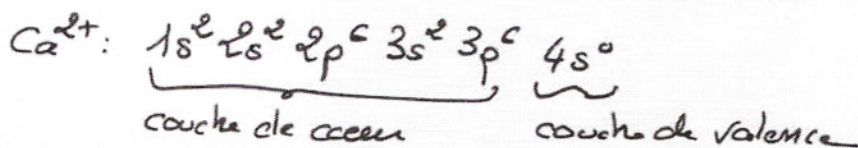 Ca²⁺: 1s² 2s² 2p⁶ 3s² 3p⁶ 4s⁰
couche de coeur couche de valence